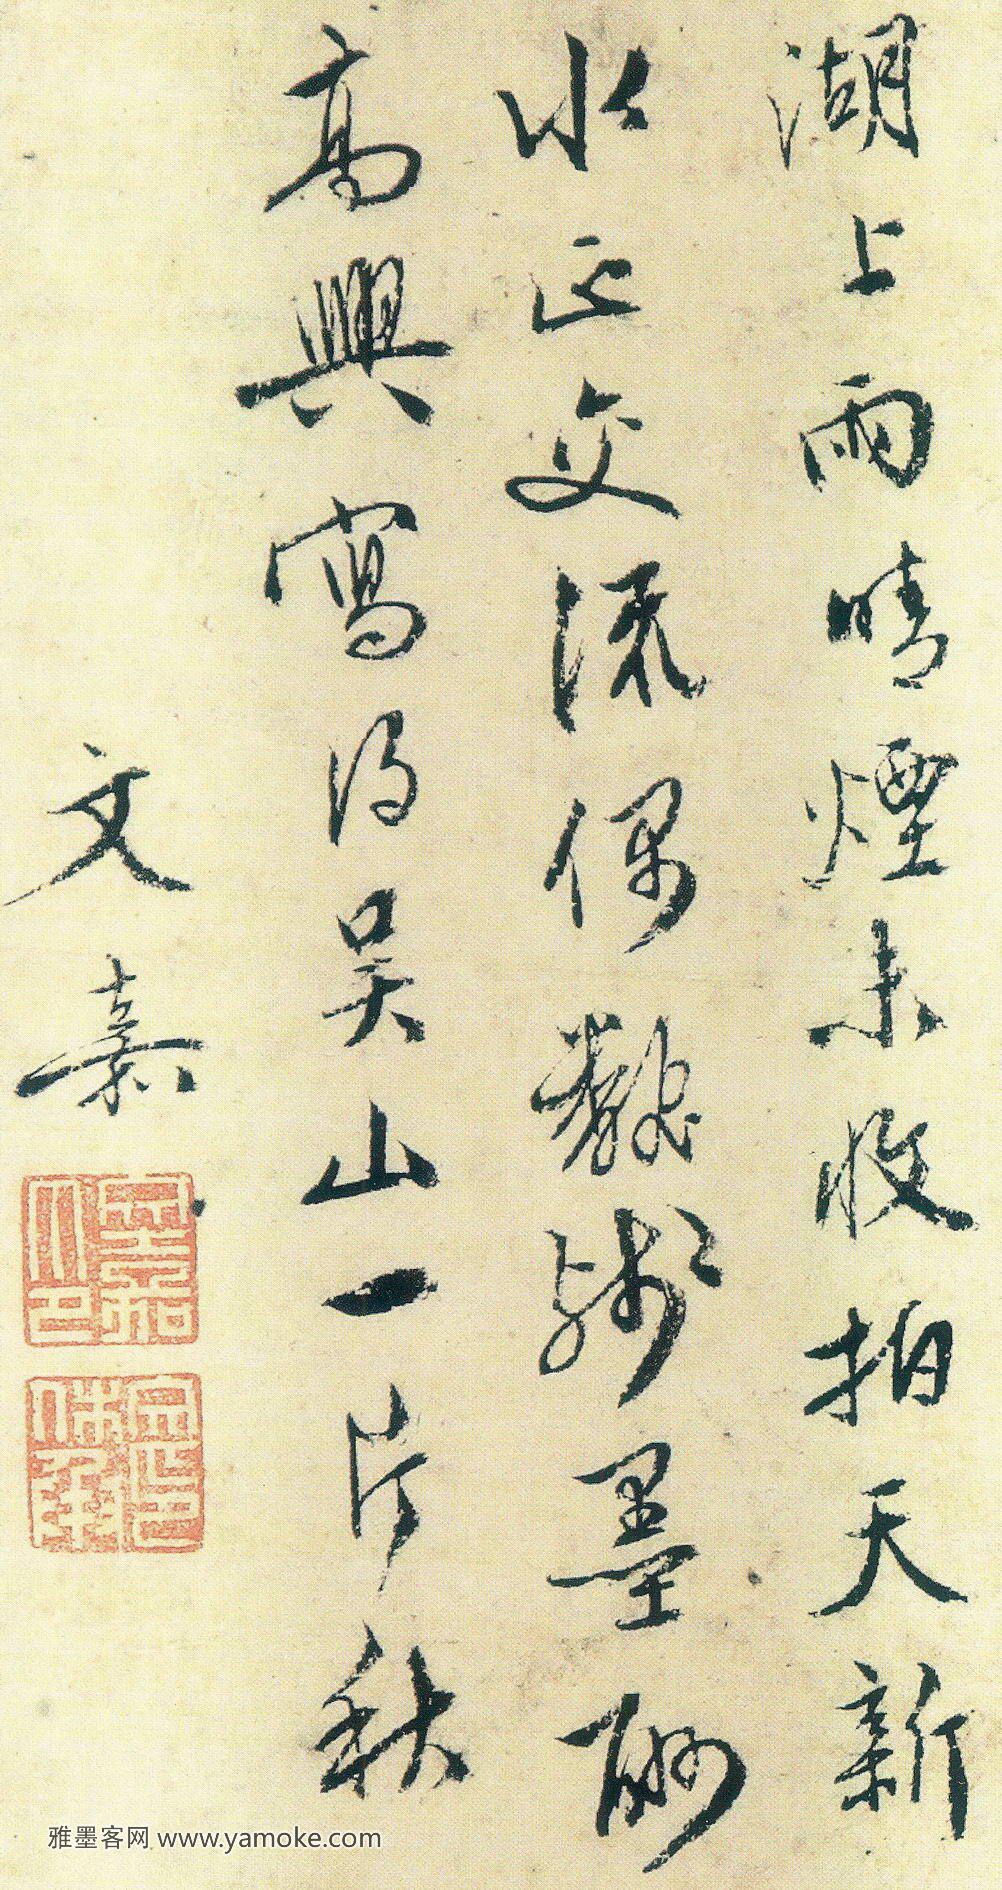 湖上雨晴煙未收拍天新
水正交流偶殘墨酬
高興寫得吳山一片秋
文嘉
雅墨客网 www.yamoke.com